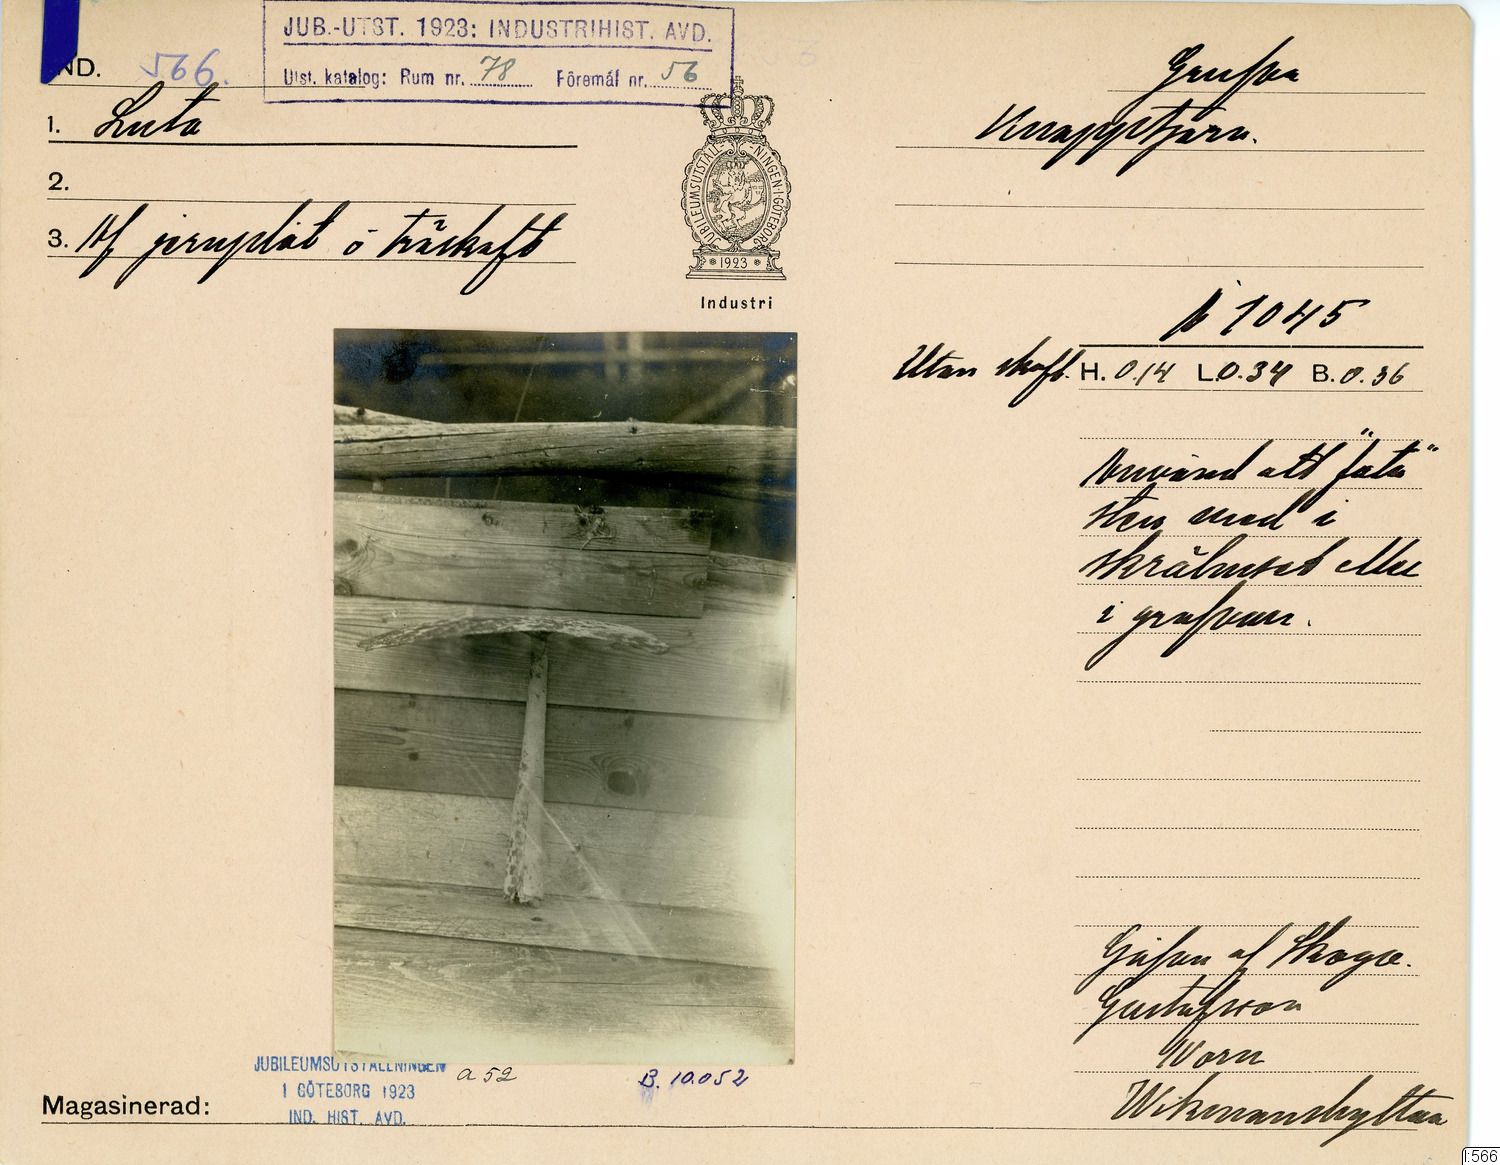 JUB.-UTST. 1923: INDUSTRIHIST. AVD.
Utst. katalog: Rum nr. 78 Föremål nr. 56
IND. 566.
1. Luta
2.
3. Af jernplåt o träskaft
JUBILEUMSUTSTÄLLNINGEN I GÖTEBORG
1923
Industri
Grufva
Knapptjärn.
1045
Utan skaft. H. 0.14 L. 0.34 B. 0.36
Använd att "fata"
sten med i
eller
i grufvan.
Gåfva af Skogv.
Gustafsson
Worn
Wikmanshyttan
JUBILEUMSUTSTÄLLNINGEN
I GÖTEBORG 1923
IND. HIST. AVD.
a 52
B. 10.052
Magasinerad:
I:566